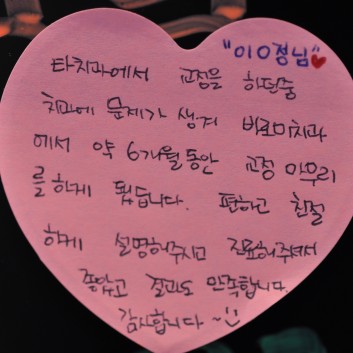 "이О정님"♥
타치과에서 교정을 하던중
치과에 문제가 생겨 바로미치과
에서 약 6개월동안 교정 마무리
를하게 됬듭니다. 편하고 친절
하게 설명해주시고 진료해주셔서
좋았고 결과도 만족합니다.
감사합니다~